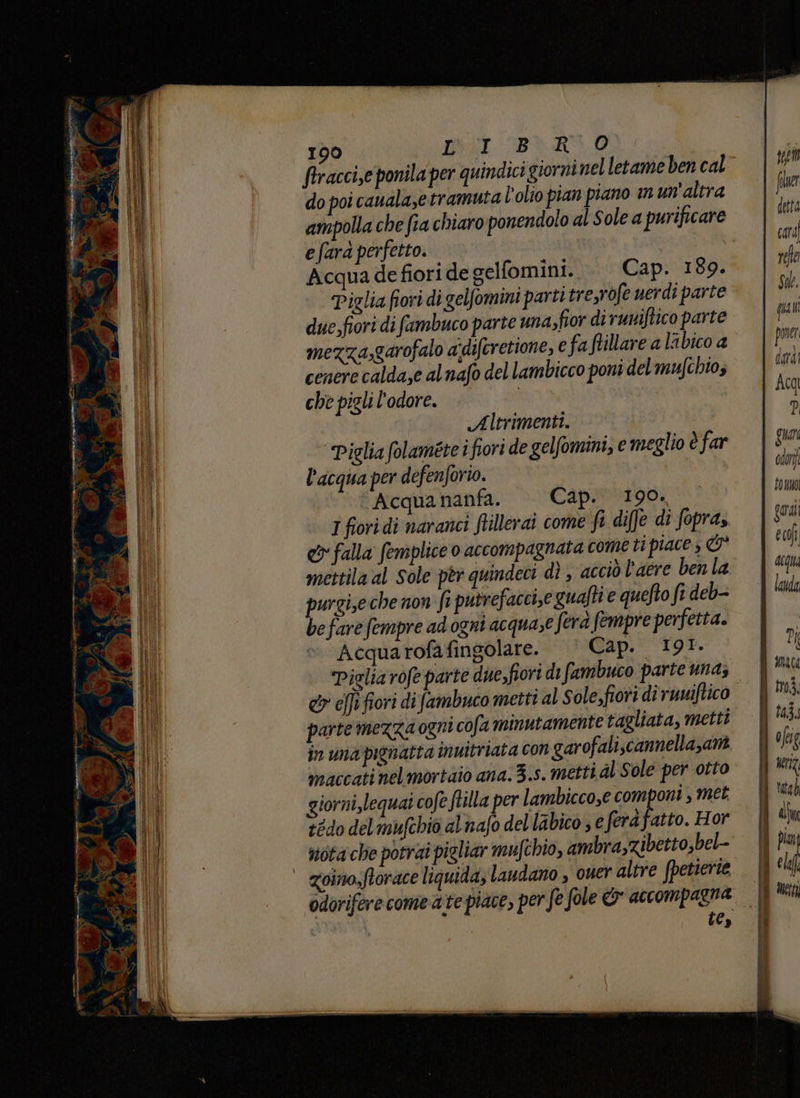 190 LIBRO
ſtracci,e ponila per quindici giorni nel letame ben cal
do poi caualа,e tramuta l'olio pian piano in un'altra
ampolla che ſia chiaro ponendolo al Sole a purificare
e ſarà perfetto.
Acqua de fiori de gelſomini. Cap. 189.
Piglia fiori di gelſomini parti tre,roſe uerdi parte
due,fiori di ſambuco parte una,fior di ruuiſtico parte
mezza,garofalo a diſcretione, e fa ſtillare a lābico a
cenere calda,e al naſo del lambicco poni del muſchio,
che pigli l'odore.
Altrimenti.
Piglia ſolamēte i fiori de gelſomini, e meglio è far
l'acqua per defenſorio.
Acqua nanfa. Cap. 190.
I fiori di naranci ſtillerai come ſi diſſe di ſopra,
& falla ſemplice o accompagnata come ti piace, &
mettila al Sole per quindeci dì, acciò l'aere ben la
purgi,e che non ſi putrefacci,e guaſti e queſto ſi deb-
be fare ſempre ad ogni acqua,e ſerà ſempre perfetta.
Acqua roſa ſingolare. Cap. 191.
Piglia roſe parte due,fiori di ſambuco parte una,
& eſſi fiori di ſambuco metti al Sole,fiori di ruuiſtico
parte mezza ogni coſa minutamente tagliata, metti
in una pignatta inuitriata con garofali,cannella,am
maccati nel mortaio ana. ℥.s. metti al Sole per otto
giorni,lequai coſe ſtilla per lambicco,e componi, met
tēdo del muſchio al naſo del lābico, e ſerà fatto. Hor
nota che potrai pigliar muſchio, ambra,zibetto,bel-
zoino,ſtorace liquida, laudano, ouer altre ſpetierie
odorifere come a te piace, per ſe ſole & accompagna
te,